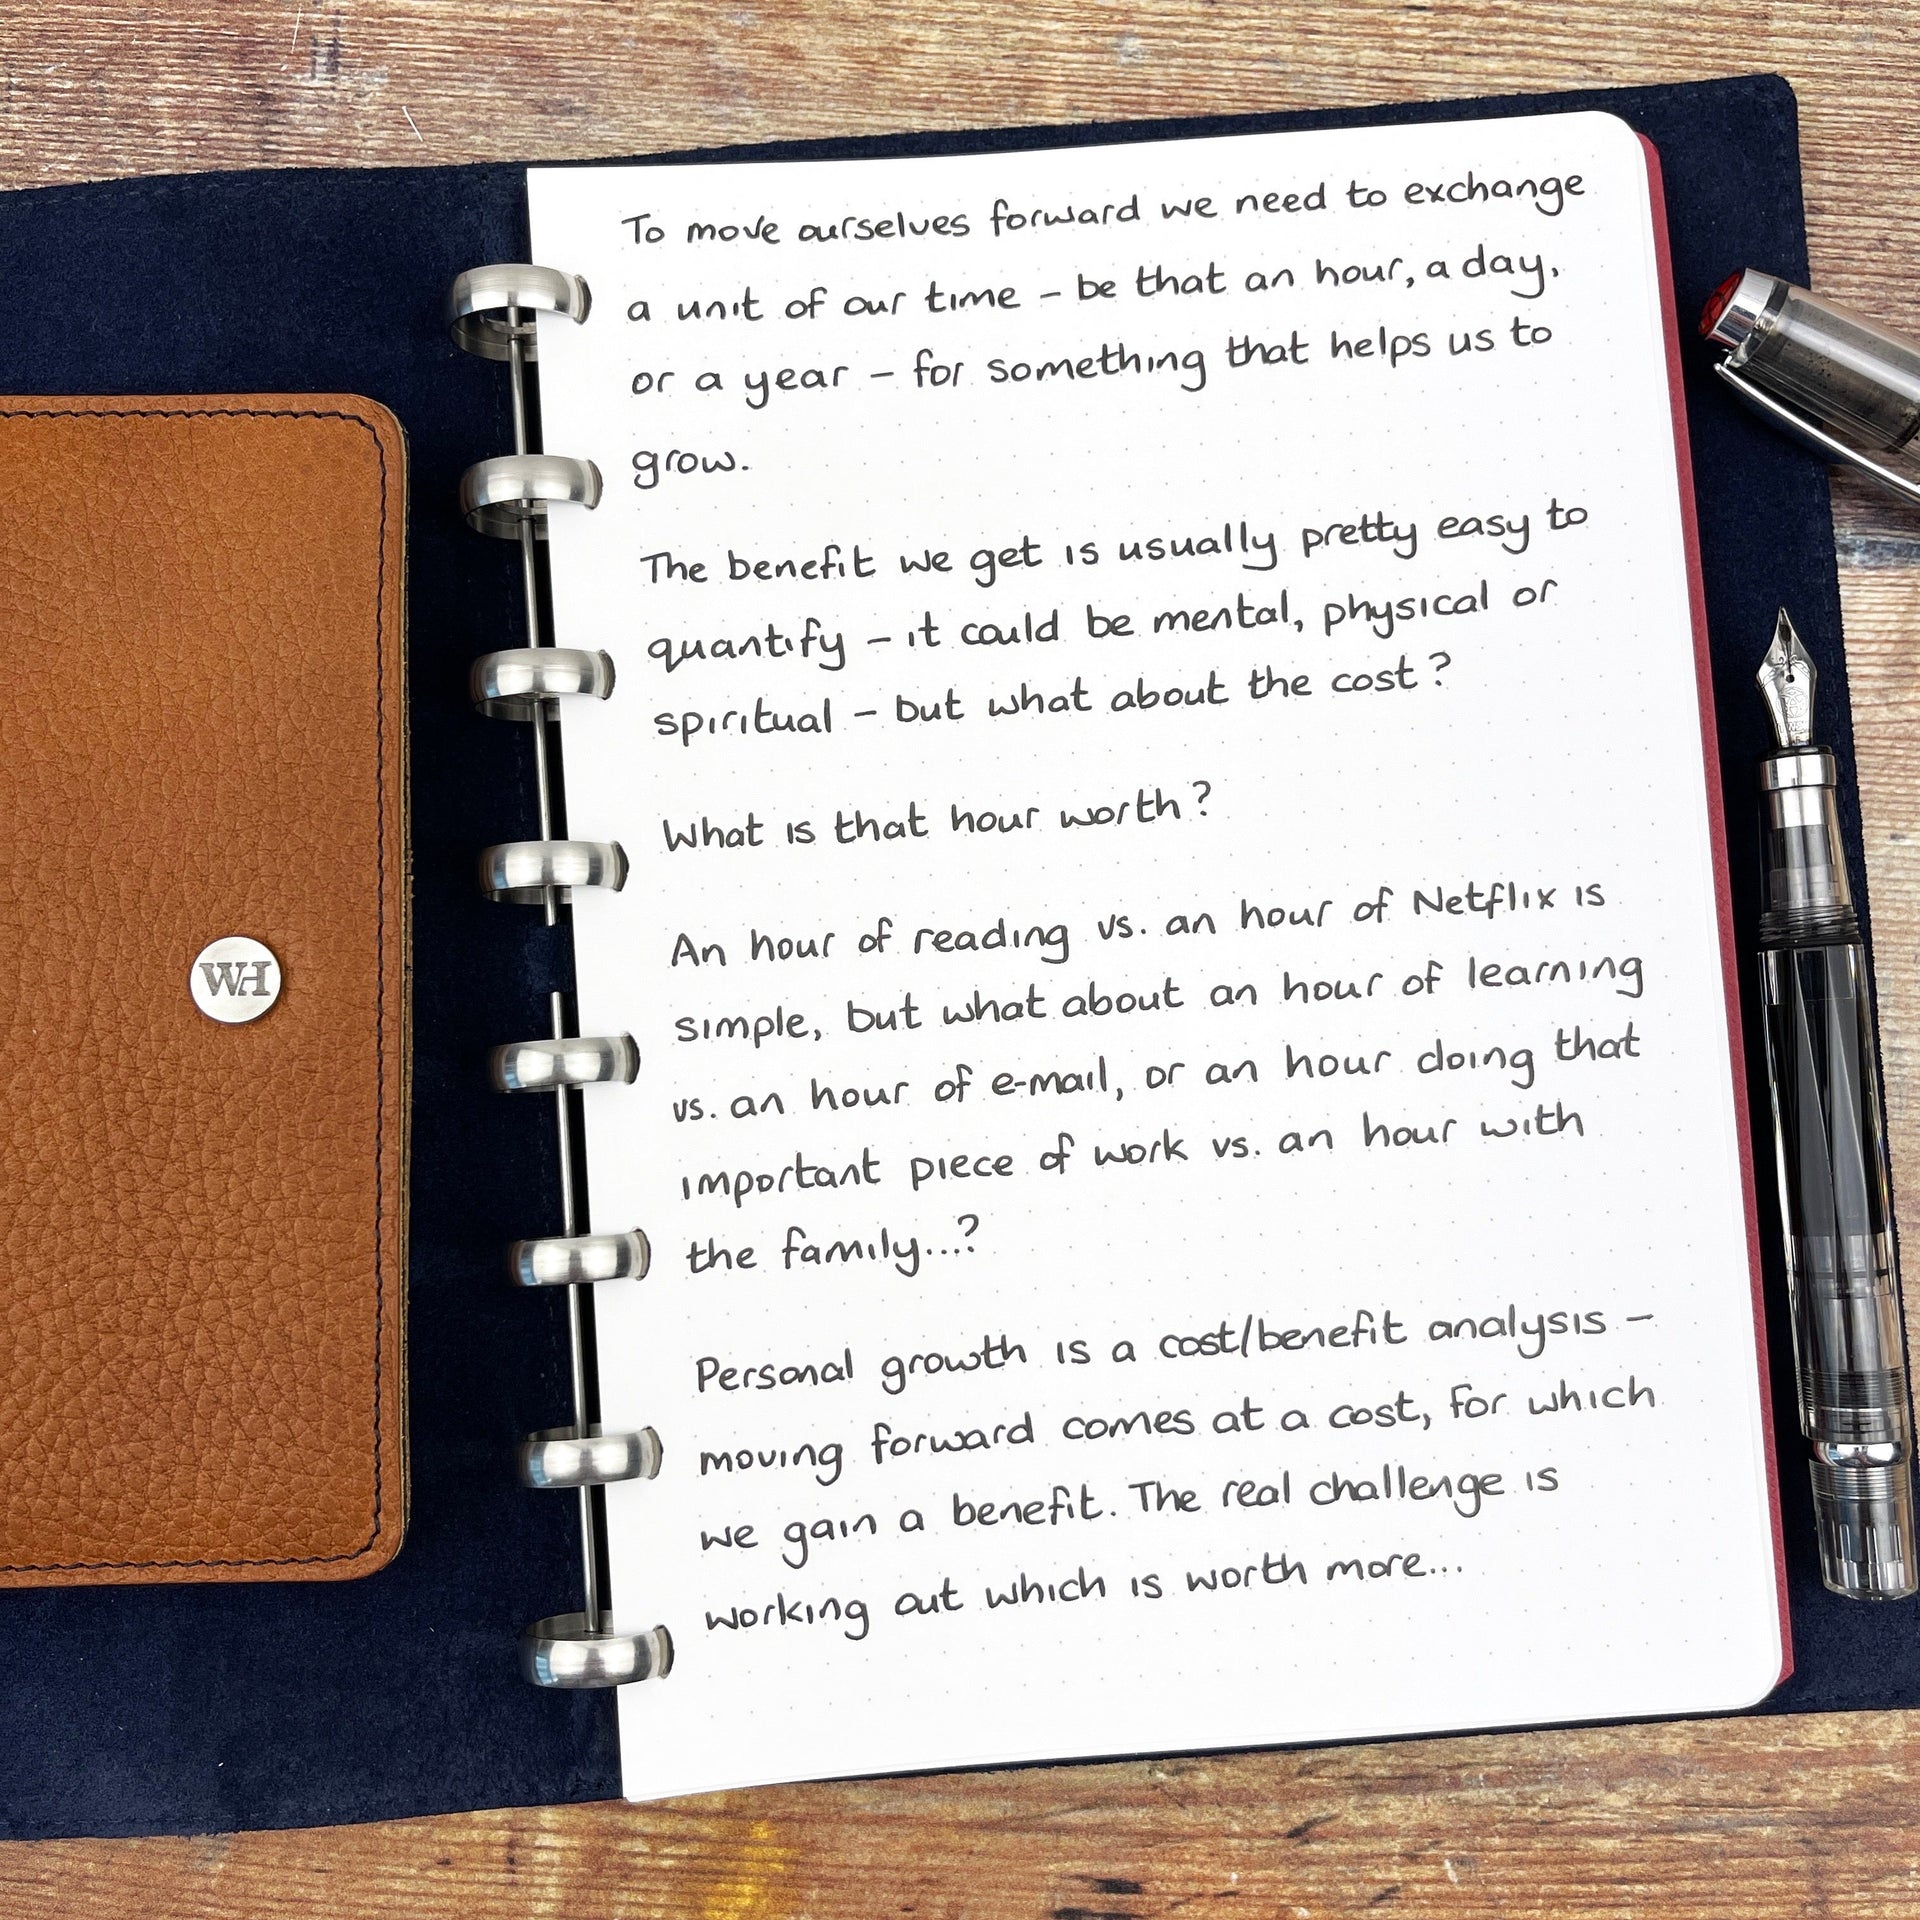 To move ourselves forward we need to exchange
a unit of our time – be that an hour, a day,
or a year – for something that helps us to
grow.
The benefit we get is usually pretty easy to
quantify – it could be mental, physical or
spiritual – but what about the cost?
What is that hour worth?
An hour of reading vs. an hour of Netflix is
simple, but what about an hour of learning
vs. an hour of e-mail, or an hour doing that
important piece of work vs. an hour with
the family...?
Personal growth is a cost/benefit analysis –
moving forward comes at a cost, for which
we gain a benefit. The real challenge is
working out which is worth more...
WH